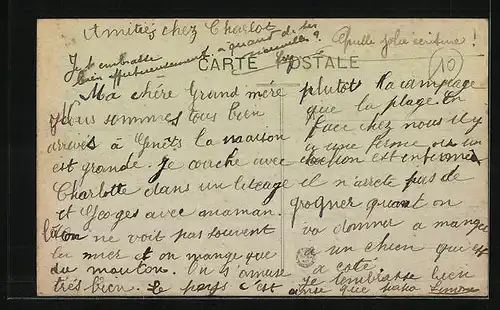 Amitiés chez Charlot
Just embrasse
bien affectueusement. à quand de ses
nouvelles ?
Quelle jolie écriture !
10
CARTE POSTALE
Ma chère Grand mère
Nous sommes tous bien
arrivés à Genêts la maison
est grande. Je couche avec
Charlotte dans un litcage
et Georges avec maman.
on ne voit pas souvent
la mer et on mange que
du mouton. On s'amuse
très bien. Le pays c'est
plutôt la campagne
que la plage. En
face chez nous il y
a une ferme ou un
cochon est enfermé
il n'arrete pas de
grogner quand on
va donner a manger
a un chien qui est
a coté.
Je t'embrasse bien
ainsi que papa Simone